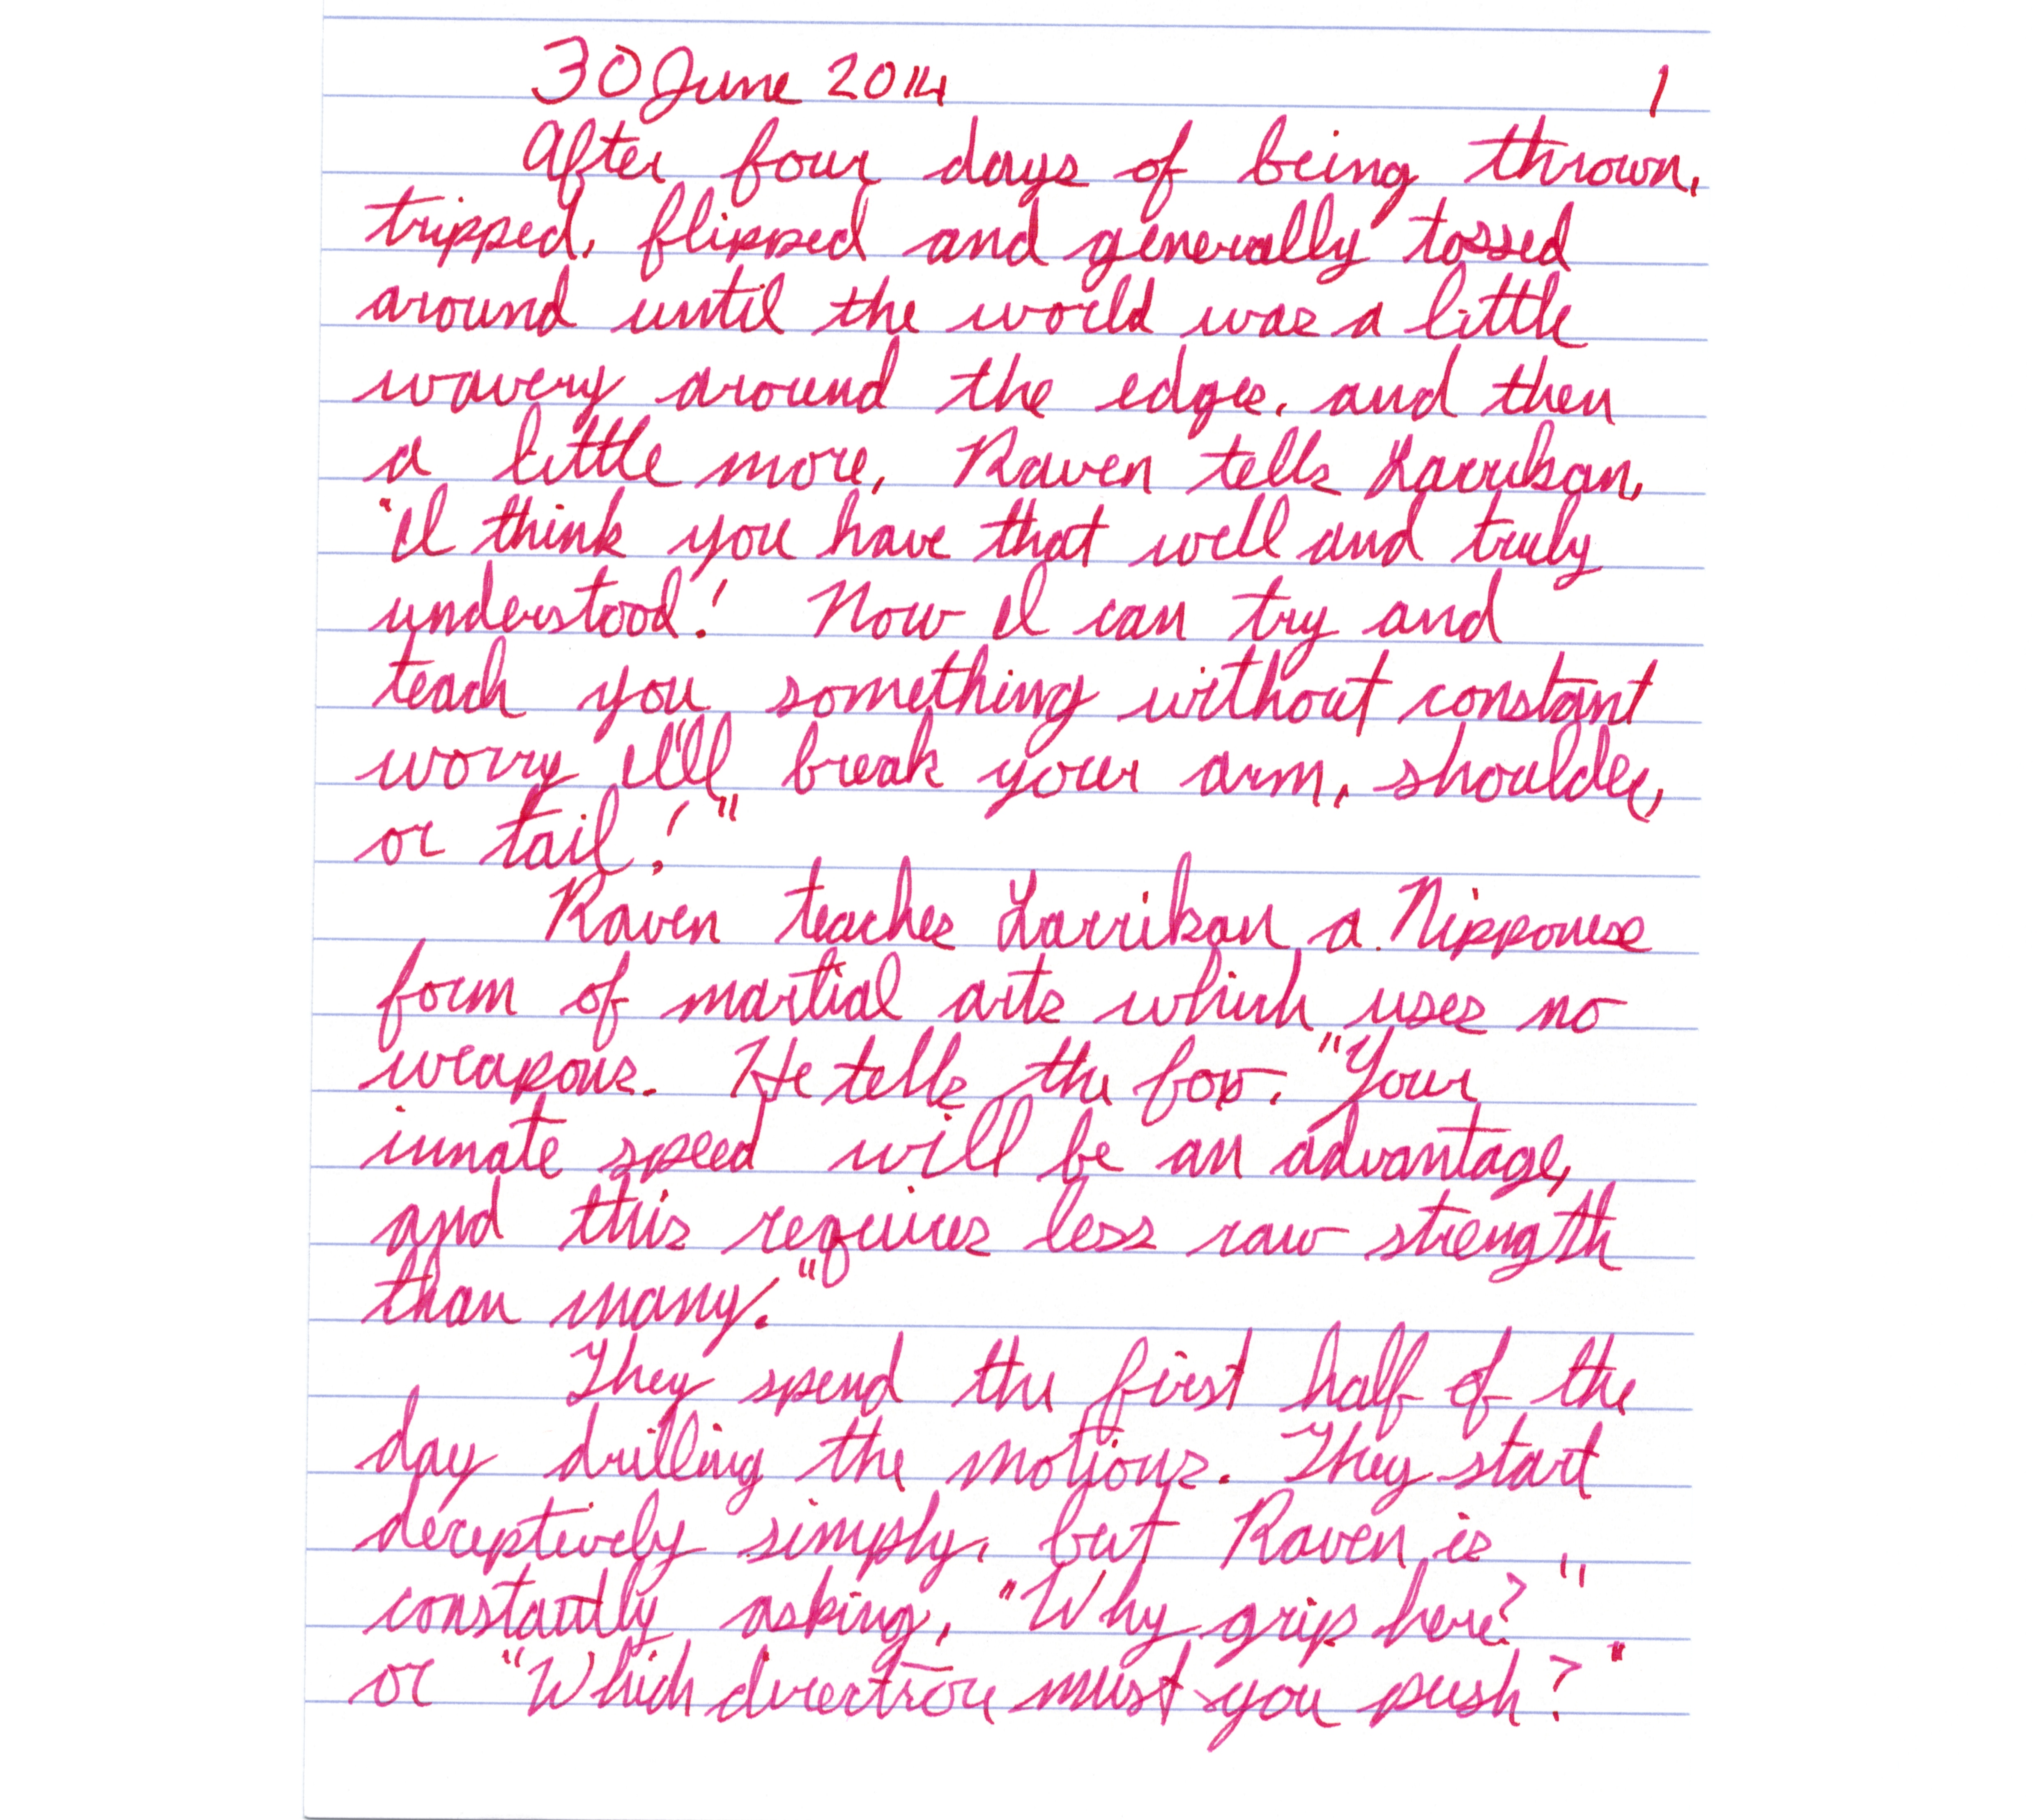 30 June 2014 1
After four days of being thrown,
tripped, flipped and generally tossed
around until the world was a little
wavery around the edges, and then
a little more, Raven tells Larrikan,
"I think you have that well and truly
understood! Now I can try and
teach you something without constant
worry I'll break your arm, shoulder,
or tail!"
Raven teaches Larrikan a Nipponese
form of martial arts which uses no
weapons. He tells the fox, "Your
innate speed will be an advantage,
and this requires less raw strength
than many."
They spend the first half of the
day drilling the motions. They start
deceptively simply, but Raven is
constantly asking, "Why grip here?"
or "Which direction must you push?"